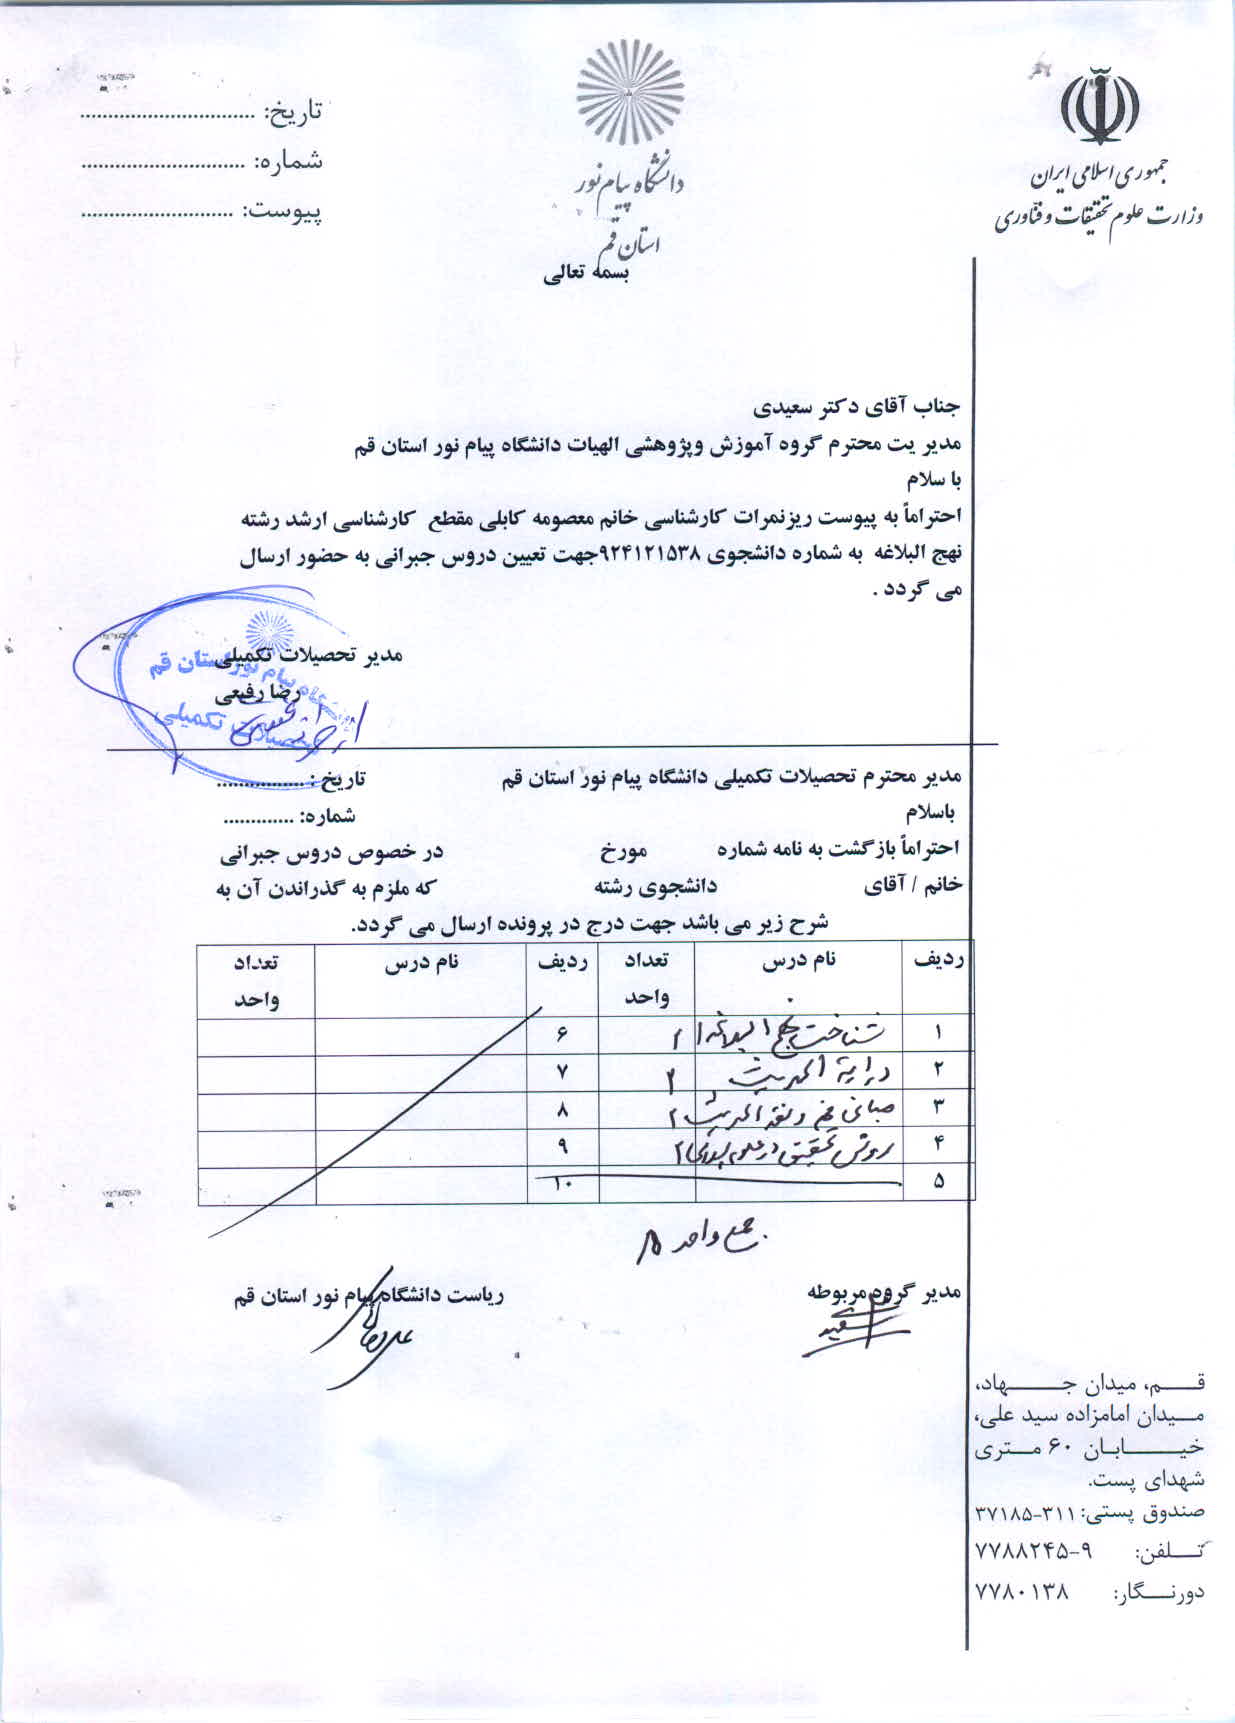 جمهوری اسلامی ایران
وزارت علوم تحقیقات و فناوری
دانشگاه پیام نور
استان قم
بسمه تعالی
تاریخ: ..............................
شماره: ............................
پیوست: ..........................
جناب آقای دکتر سعیدی
مدیر یت محترم گروه آموزش وپژوهشی الهیات دانشگاه پیام نور استان قم
با سلام
احتراماً به پیوست ریزنمرات کارشناسی خانم معصومه کابلی مقطع کارشناسی ارشد رشته
نهج البلاغه به شماره دانشجوی ۹۲۴۱۲۱۵۳۸جهت تعیین دروس جبرانی به حضور ارسال
می گردد .
مدیر تحصیلات تکمیلی
رضا رفیعی
دانشگاه پیام نور استان قم
تحصیلات تکمیلی
مدیر محترم تحصیلات تکمیلی دانشگاه پیام نور استان قم تاریخ : ................
باسلام شماره: .............
احتراماً بازگشت به نامه شماره مورخ در خصوص دروس جبرانی
خانم / آقای دانشجوی رشته که ملزم به گذراندن آن به
شرح زیر می باشد جهت درج در پرونده ارسال می گردد.
ردیف نام درس تعداد واحد ردیف نام درس تعداد واحد
۱ شناخت نهج البلاغه ۱ ۲ ۶
۲ درایة الحدیث ۲ ۷
۳ مبانی فهم و نقد الحدیث ۲ ۸
۴ روش تحقیق در علوم ۲ ۹
۵ ۱۰
جمع واحد ۸
مدیر گروه مربوطه ریاست دانشگاه پیام نور استان قم
سعیدی
قـــم، میدان جـــهاد،
میـدان امامزاده سید علی،
خیـــابـان ۶۰ متـری
شهدای پست.
صندوق پستی: ۳۱۱-۳۷۱۸۵
تـــلفن: ۹-۷۷۸۸۲۴۵
دورنـــگار: ۷۷۸۰۱۳۸